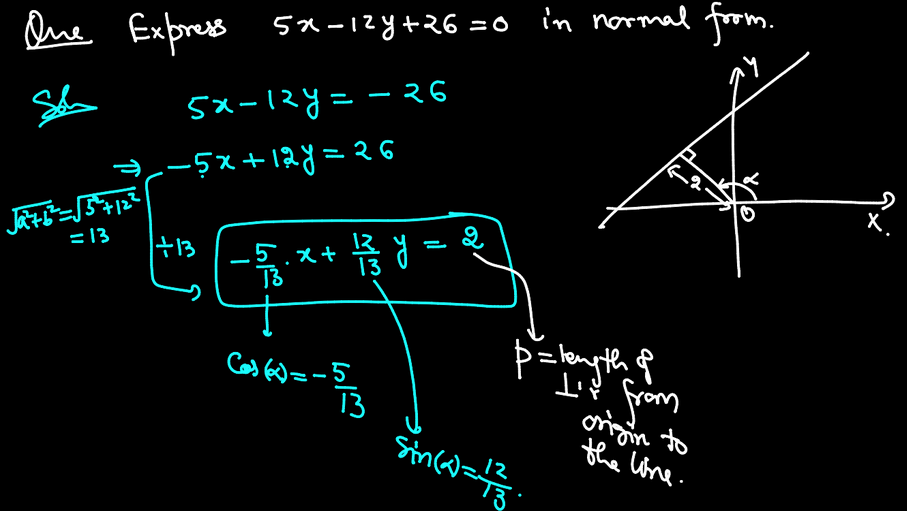 Que Express 5x-12y+26=0 in normal from.
Soln 5x-12y=-26
⇒ -5x+12y=26
√a²+b² = √5²+12²
=13
÷13
-5/13 . x + 12/13 y = 2
Cos(α)=-5/13
Sin(α)=12/13.
p=length of
⊥'r from
origin to
the line.
Y
2
α
O
X.